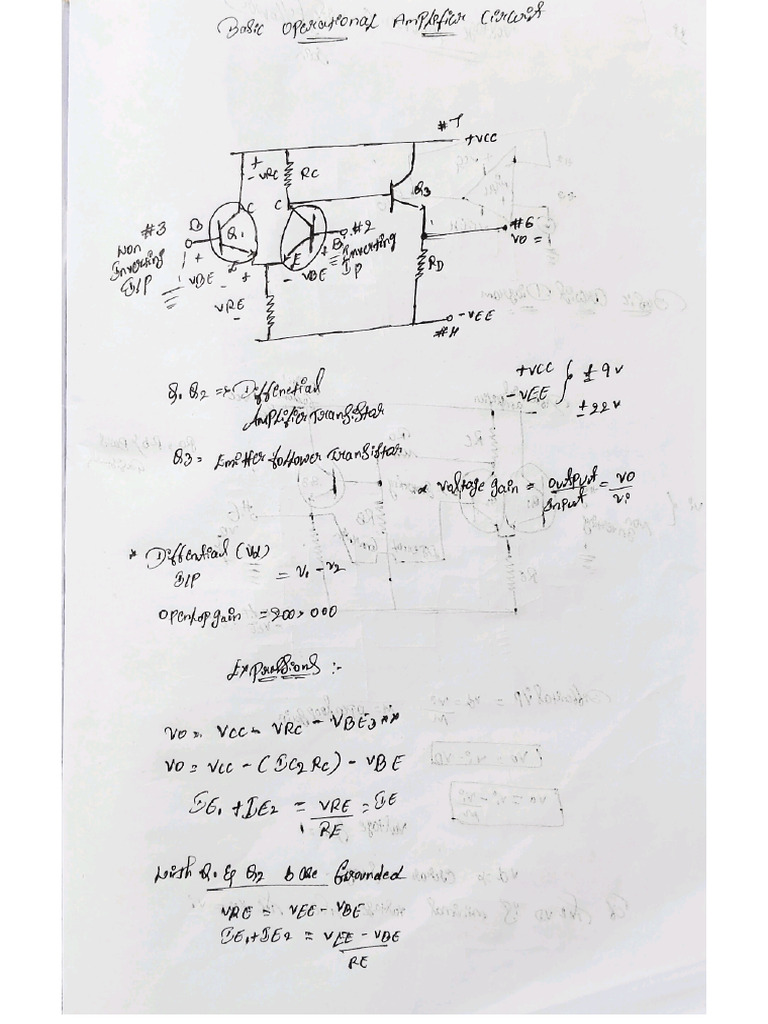 Basic Operational Amplifier Circuit
#7
+VCC
+
- VRC
RC
C
C
Q3
#3
B
Q1
#2
#6
Non
Inverting
I/P
B
Inverting
I/P
VO =
E
E
+
VBE
-
+
- VBE
+
RD
VRE
-
- VEE
#4
+VCC
- VEE
± 9v
± 22v
Q1 Q2 => Diffenetial
Amplifier Transistar
Q3 = Emitter follower Transistar
* voltage gain = output/Input = VO/Vi
* Diffential (Vd)
I/P = V1 - V2
Openlop gain = 200,000
Expressions :-
VO = VCC - VRC - VBE3 **
VO = VCC - (IC2 RC) - VBE
IE1 + IE2 = VRE/RE = IE
With Q1 & Q2 base Grounded
VRE = VEE - VBE
IE1 + IE2 = VEE - VBE
RE